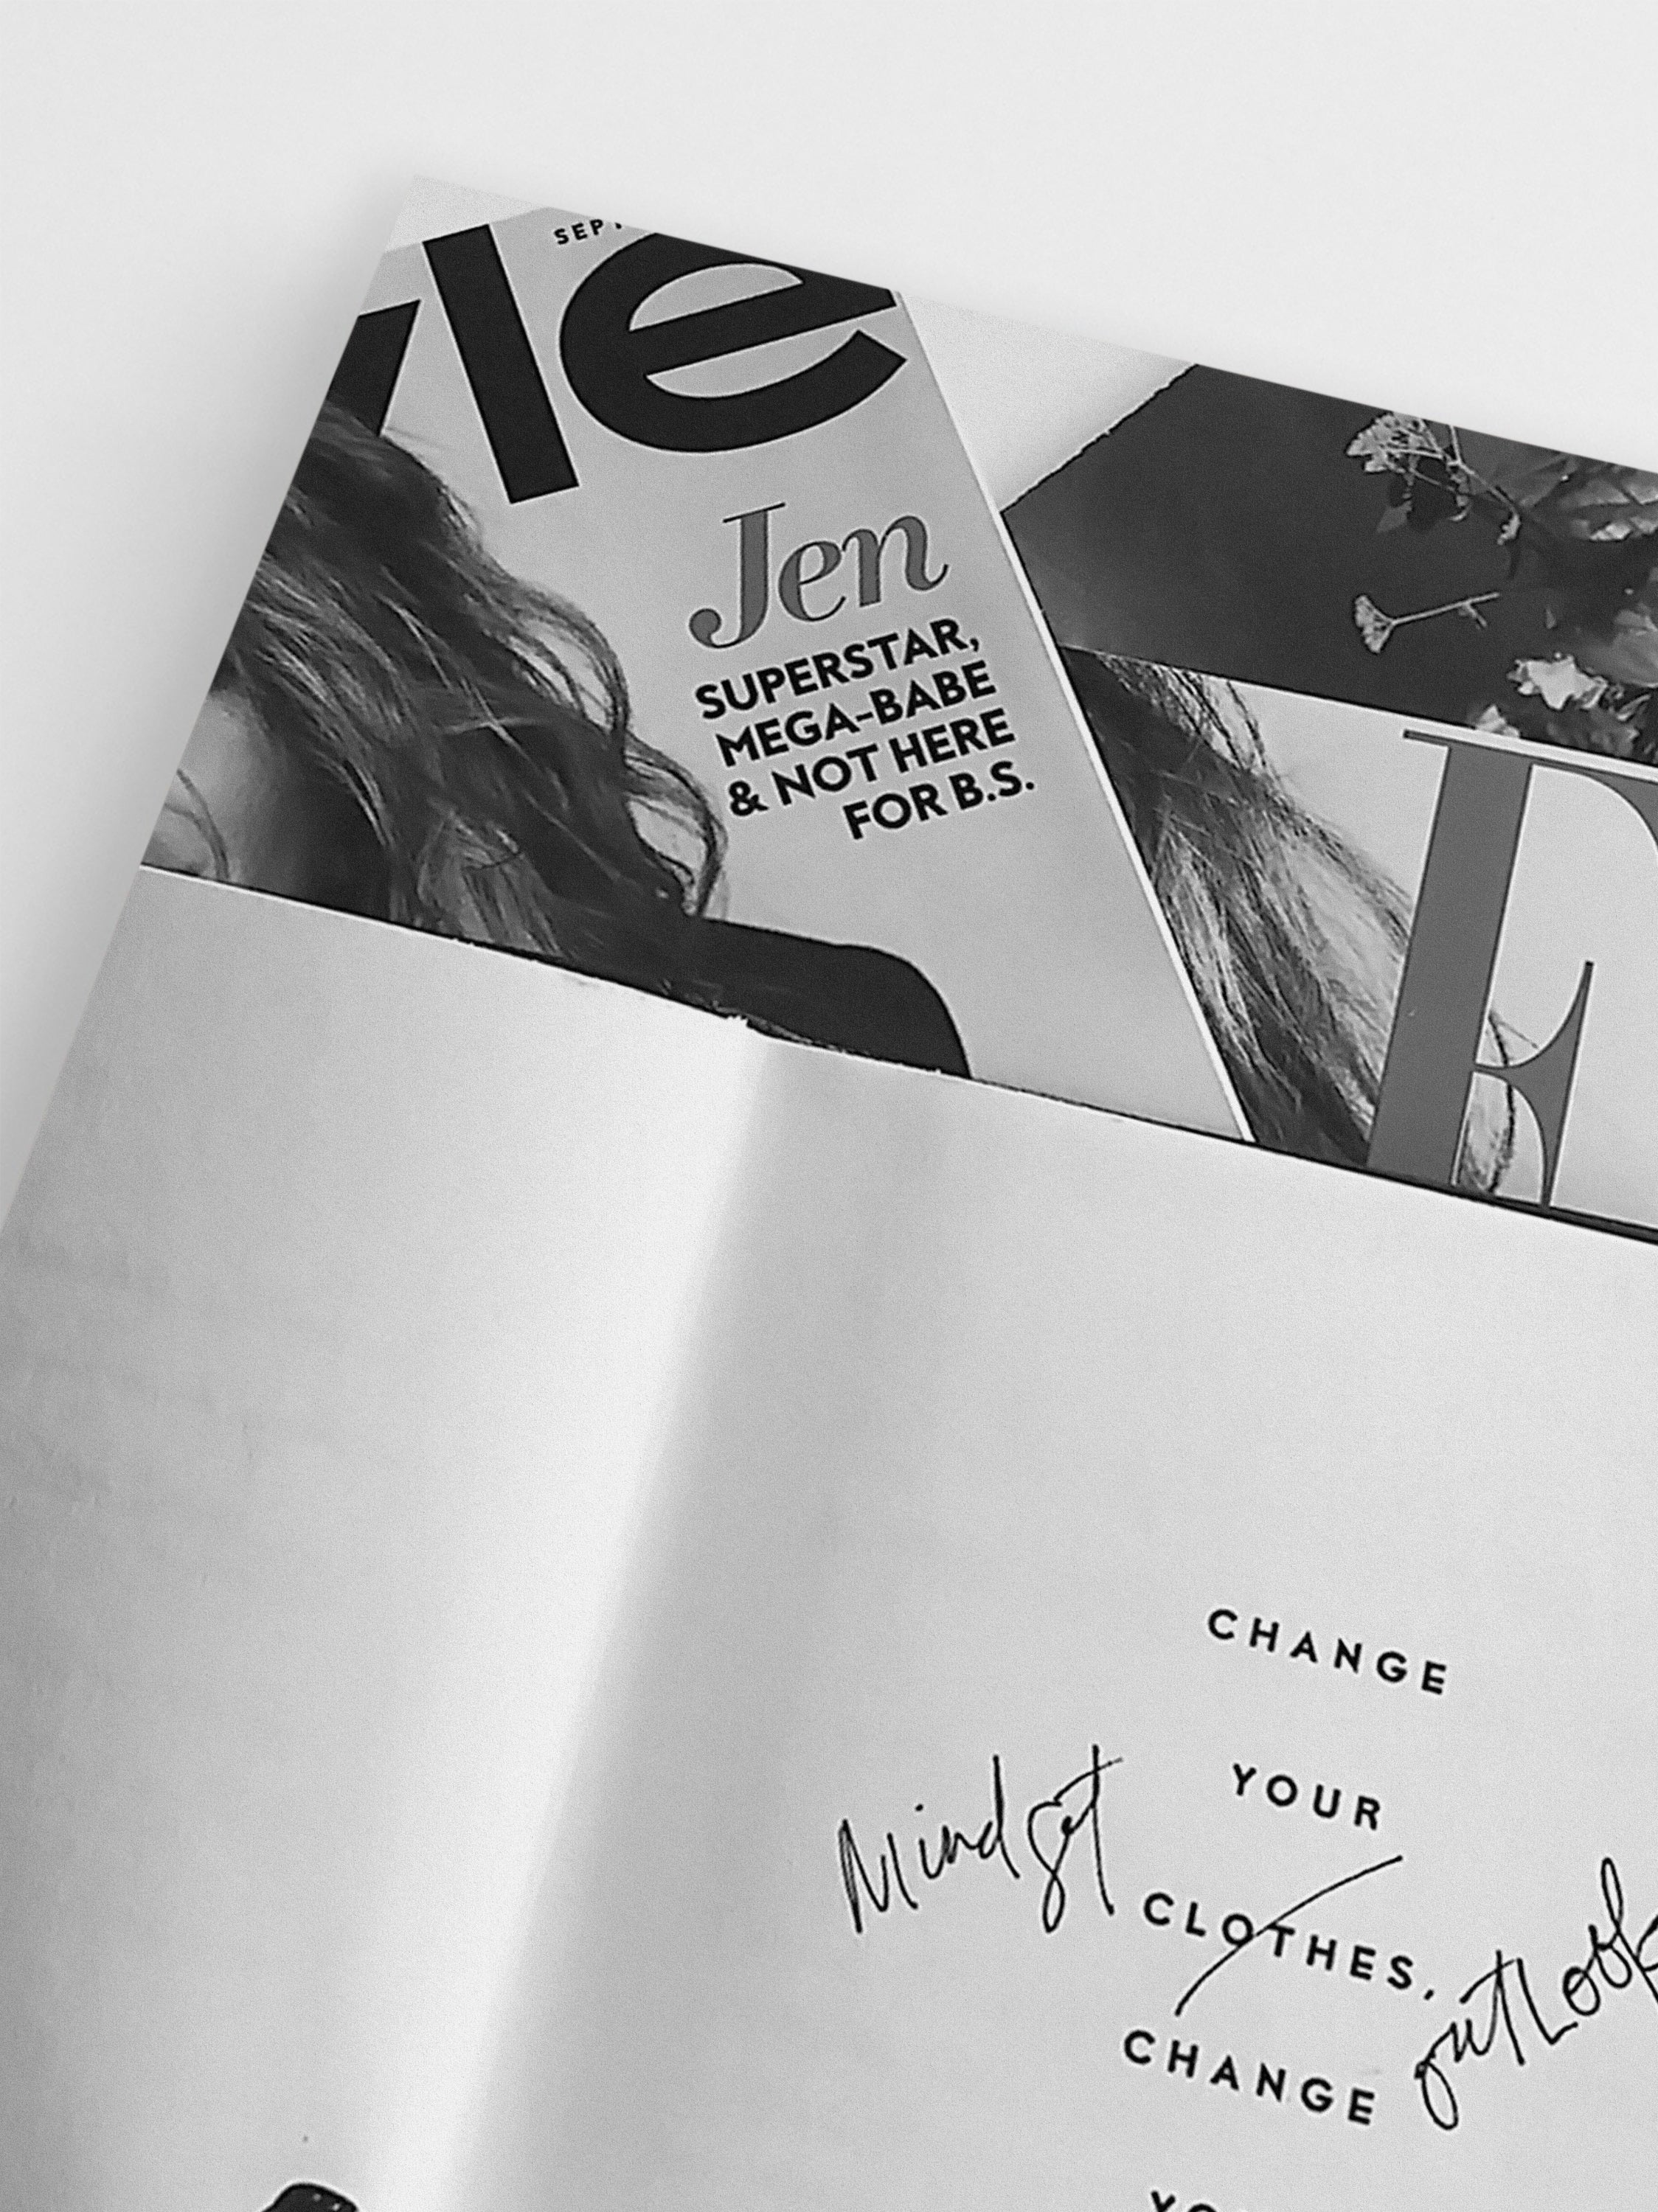 SEPT
yle
Jen
SUPERSTAR,
MEGA-BABE
& NOT HERE
FOR B.S.
CHANGE
YOUR
Mindset
CLOTHES,
outLook
CHANGE